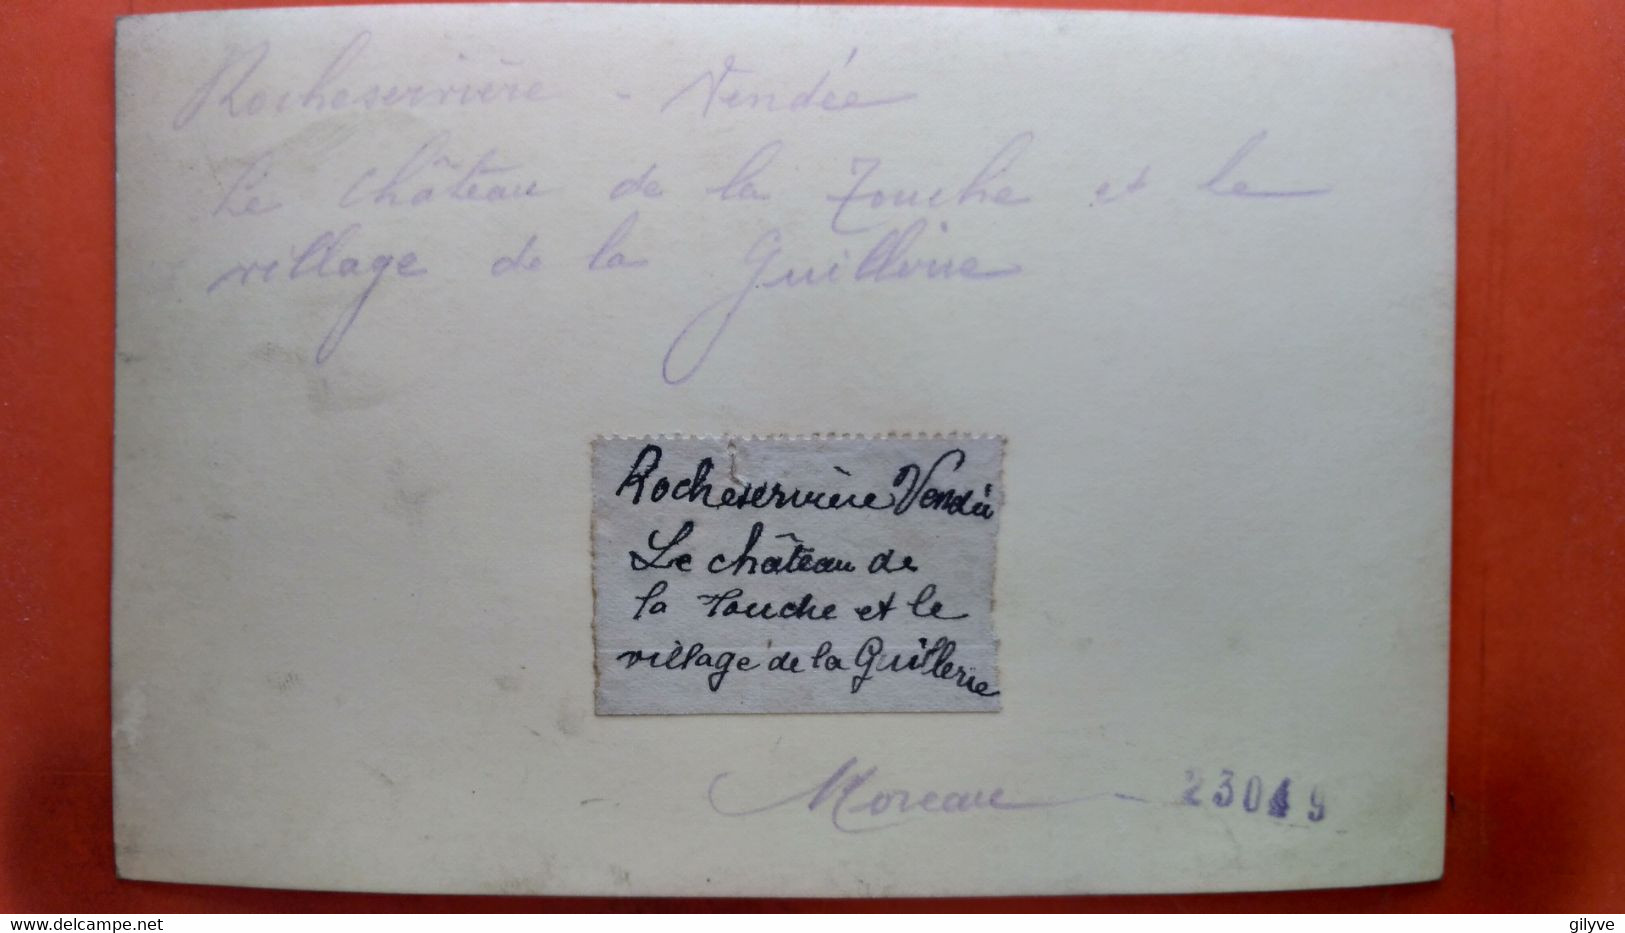 Rocheservière - Vendée
Le château de la Touche et le
village de la Guillerie
Rocheservière Vendée
Le château de
la Touche et le
village de la Guillerie
Moreau - 23019
delcampe.net
gilyve